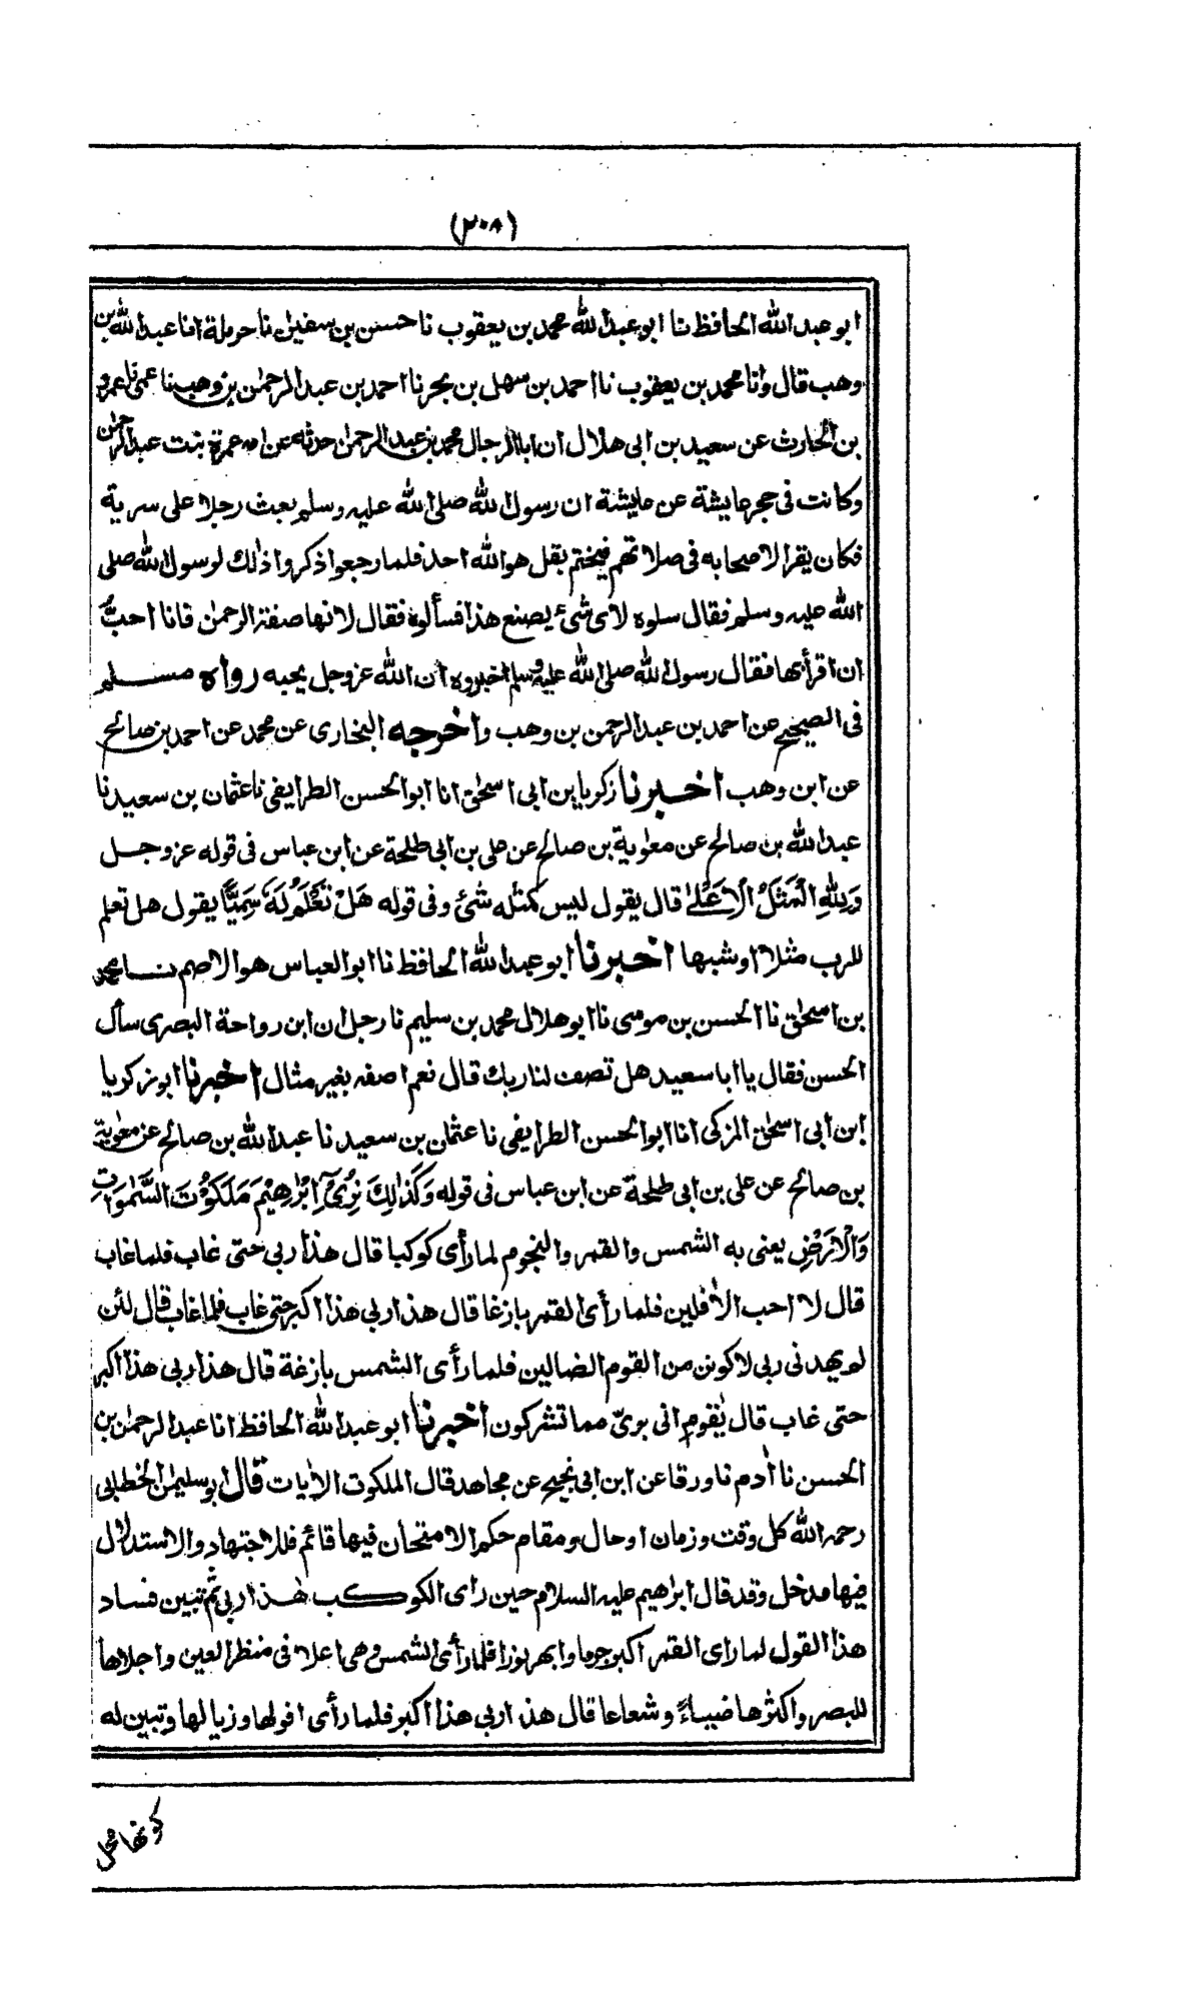 (٢٠٨)
ابو عبد الله الحافظ نا ابو عبد الله محمد بن يعقوب نا حسن بن سفين نا حرملة انا عبد الله بن
وهب قال وانا محمد بن يعقوب نا احمد بن سهل بن بحر نا احمد بن عبد الرحمن بن وهب نا عمى نا عمرو
بن الحارث عن سعيد بن ابى هلال ان ابا الرجال محمد بن عبد الرحمن حدثه عن امه عمرة بنت عبد الرحمن
وكانت فى حجر عايشة عن عايشة ان رسول الله صلى الله عليه وسلم بعث رجلا على سرية
فكان يقرا لاصحابه فى صلاتهم فيختم بقل هو الله احد فلما رجعوا ذكروا ذلك لرسول الله صلى
الله عليه وسلم فقال سلوه لاى شئ يصنع هذا فسألوه فقال لانها صفة الرحمن فانا احبُّ
ان اقرأ بها فقال رسول الله صلى الله عليه وسلم اخبروه ان الله عز وجل يحبه رواه مسلم
فى الصحيح عن احمد بن عبد الرحمن بن وهب واخرجه البخارى عن محمد عن احمد بن صالح
عن ابن وهب اخبرنا زكريا بن ابى اسحق انا ابو الحسن الطرايفى نا عثمان بن سعيد نا
عبد الله بن صالح عن معوية بن صالح عن على بن ابى طلحة عن ابن عباس فى قوله عز وجل
وَلِلّٰهِ الْمَثَلُ الْاَعْلٰى قال يقول ليس كمثله شئ وفى قوله هَلْ تَعْلَمُ لَهٗ سَمِيًّا يقول هل تعلم
للرب مثلا او شبها اخبرنا ابو عبد الله الحافظ نا ابو العباس هو الاصم نا محمد
بن اسحق نا الحسن بن موسى نا ابو هلال محمد بن سليم نا رجل ان ابن رواحة البصرى سأل
الحسن فقال يا ابا سعيد هل تصف لنا ربك قال نعم اصفه بغير مثال اخبرنا ابو زكريا
ابن ابى اسحق المزكى انا ابو الحسن الطرايفى نا عثمان بن سعيد نا عبد الله بن صالح عن معوية
بن صالح عن على بن ابى طلحة عن ابن عباس فى قوله وَكَذٰلِكَ نُرِىْ اِبْرٰهِيْمَ مَلَكُوْتَ السَّمٰوَاتِ
وَالْاَرْضِ يعنى به الشمس والقمر والنجوم لما رأى كوكبا قال هذا ربى حتى غاب فلما غاب
قال لا احب الاٰفلين فلما رأى القمر بازغا قال هذا ربى هذا اكبر حتى غاب فلما غاب قال لئن
لم يهدنى ربى لاكونن من القوم الضالين فلما رأى الشمس بازغة قال هذا ربى هذا اكبر
حتى غاب قال يٰقوم انى برىّ مما تشركون اخبرنا ابو عبد الله الحافظ انا عبد الرحمن بن
الحسن نا اٰدم نا ورقا عن ابن ابى نجيح عن مجاهد قال الملكوت الاٰيات قال ابو سليمن الخطابى
رحمه الله كل وقت وزمان او حال ومقام حكم الامتحان فيها قائم فللاجتهاد والاستدلال
فيها مدخل وقد قال ابراهيم عليه السلام حين رأى الكوكب هٰذا ربى ثم تبين فساد
هذا القول لما راى القمر اكبر جرما وابهر نورا فلما رأى الشمس وهى اعلا فى منظر العين واجلاها
للبصر واكثرها ضياءً وشعاعا قال هذا ربى هذا اكبر فلما رأى افولها وزيالها وتبين له
كونها محل